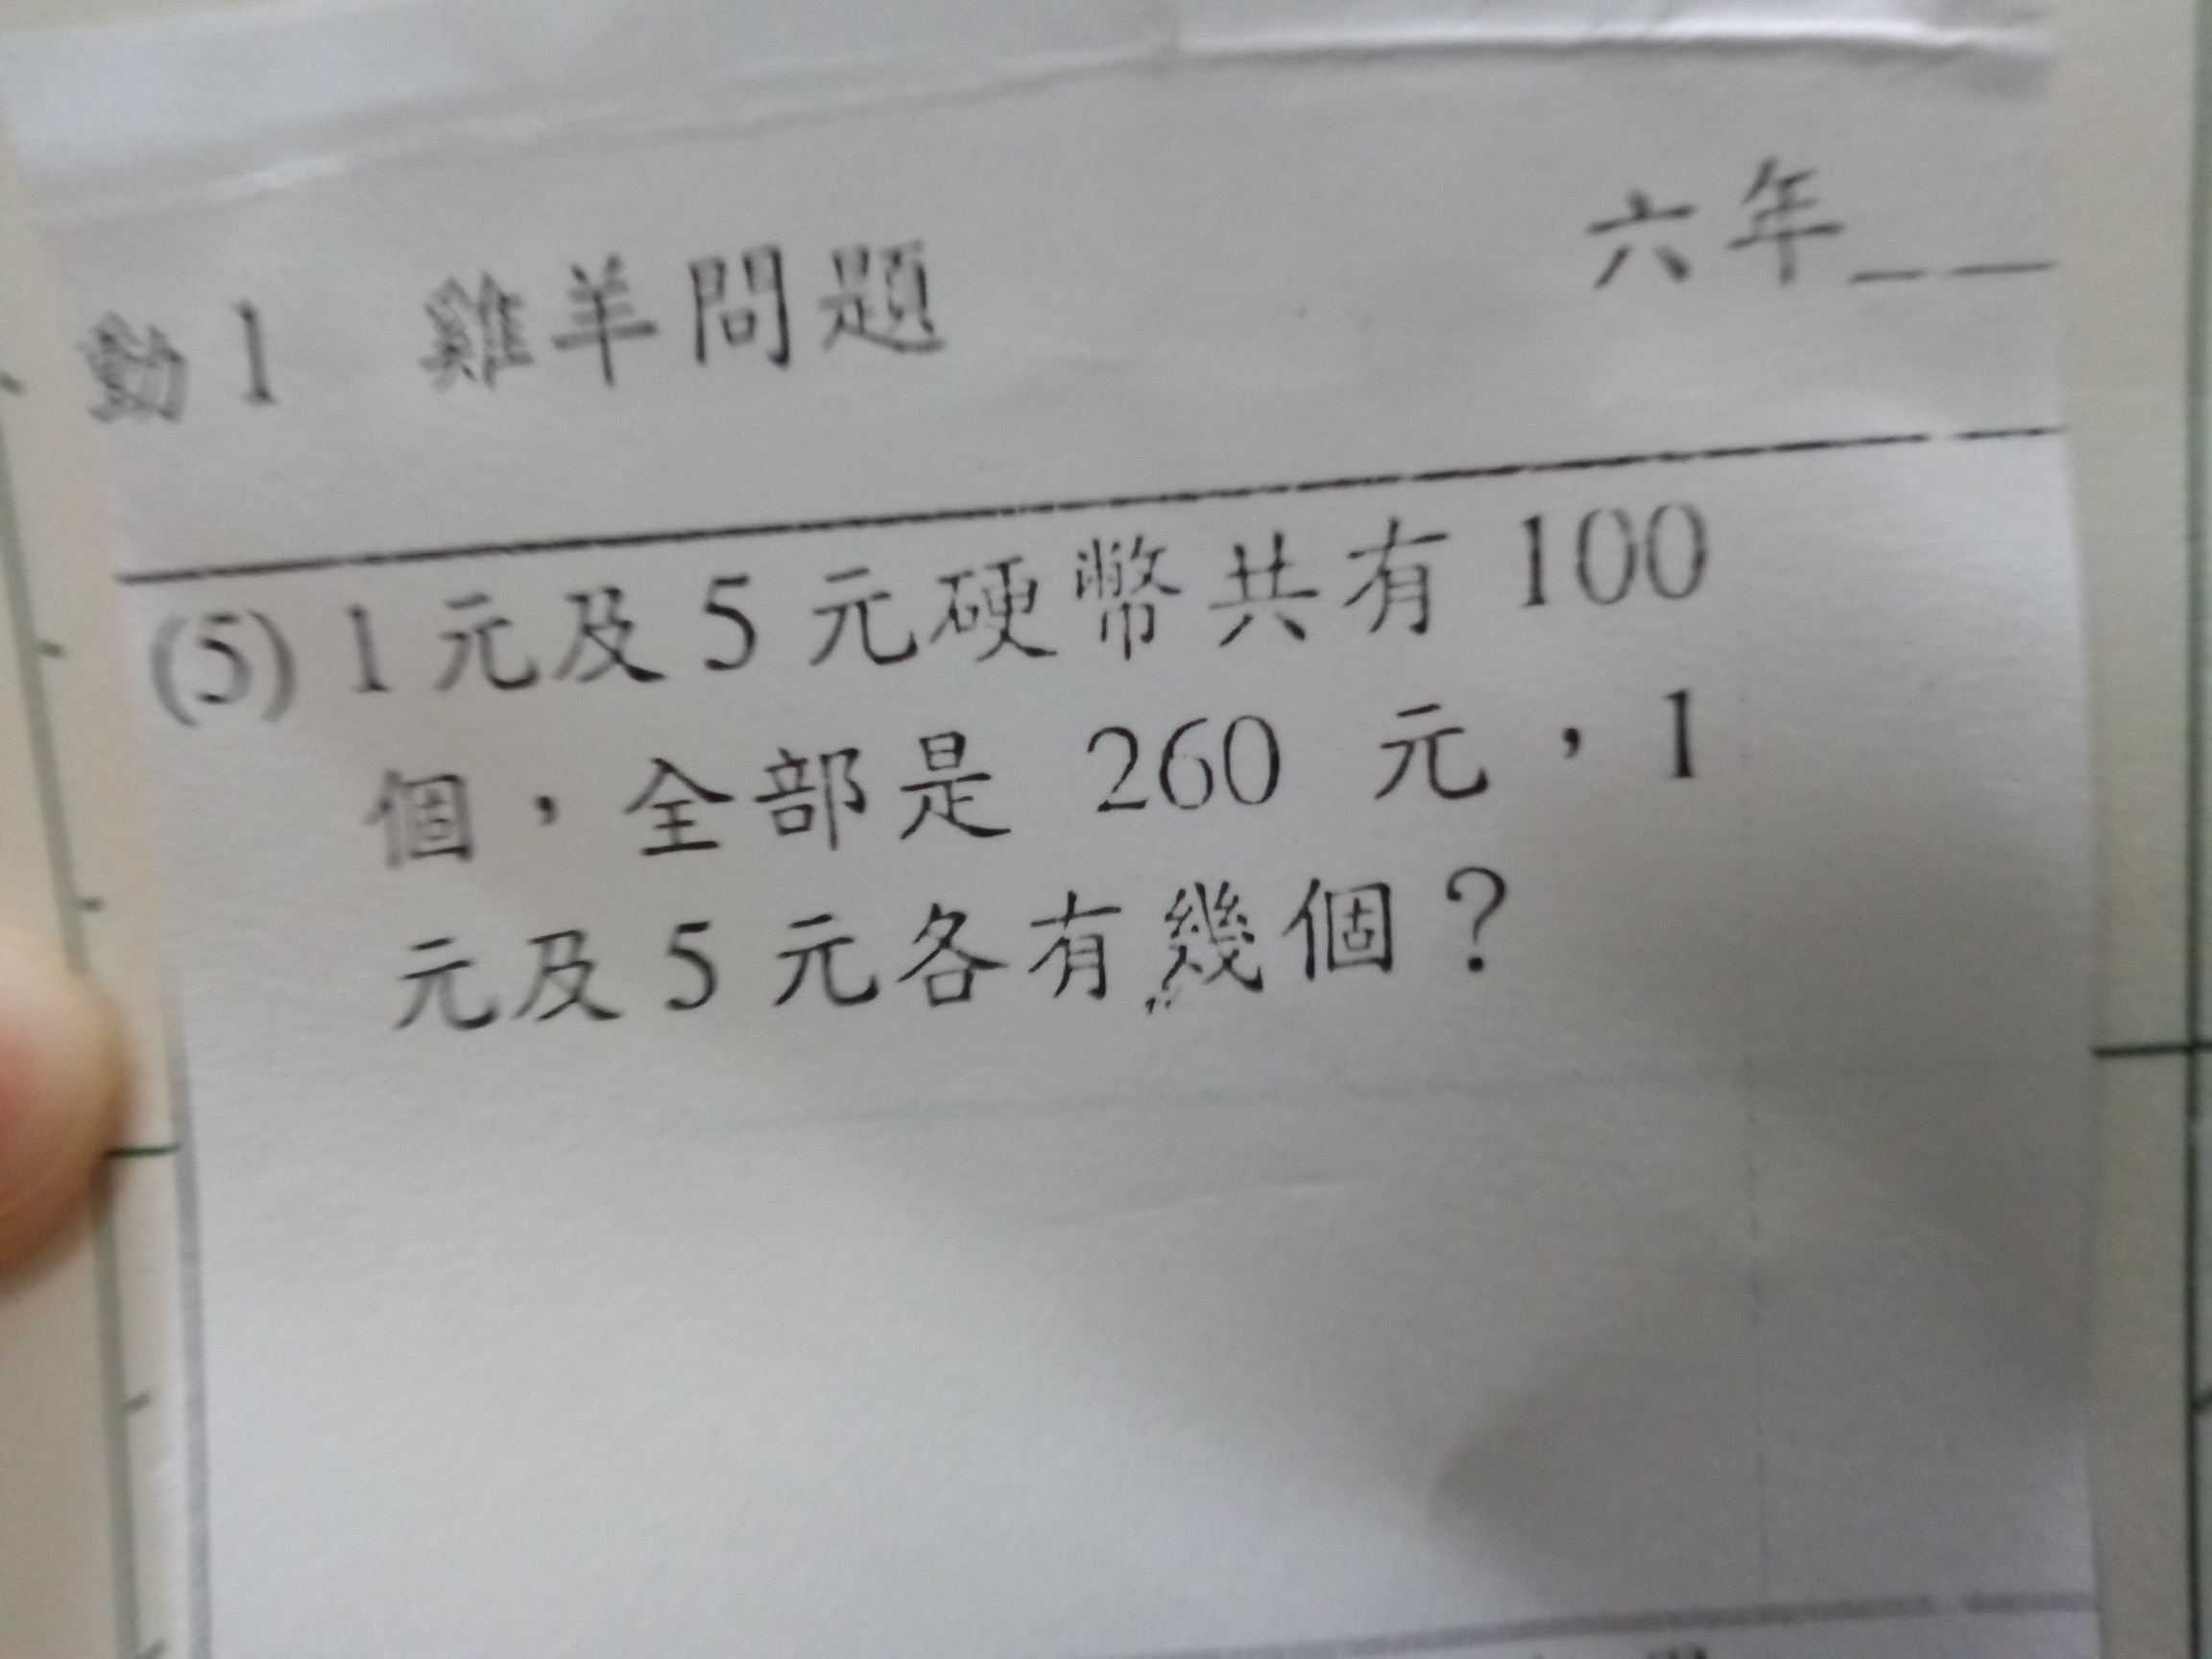 動1 雞羊問題 六年__
(5) 1元及5元硬幣共有 100
個，全部是 260 元，1
元及5元各有幾個？